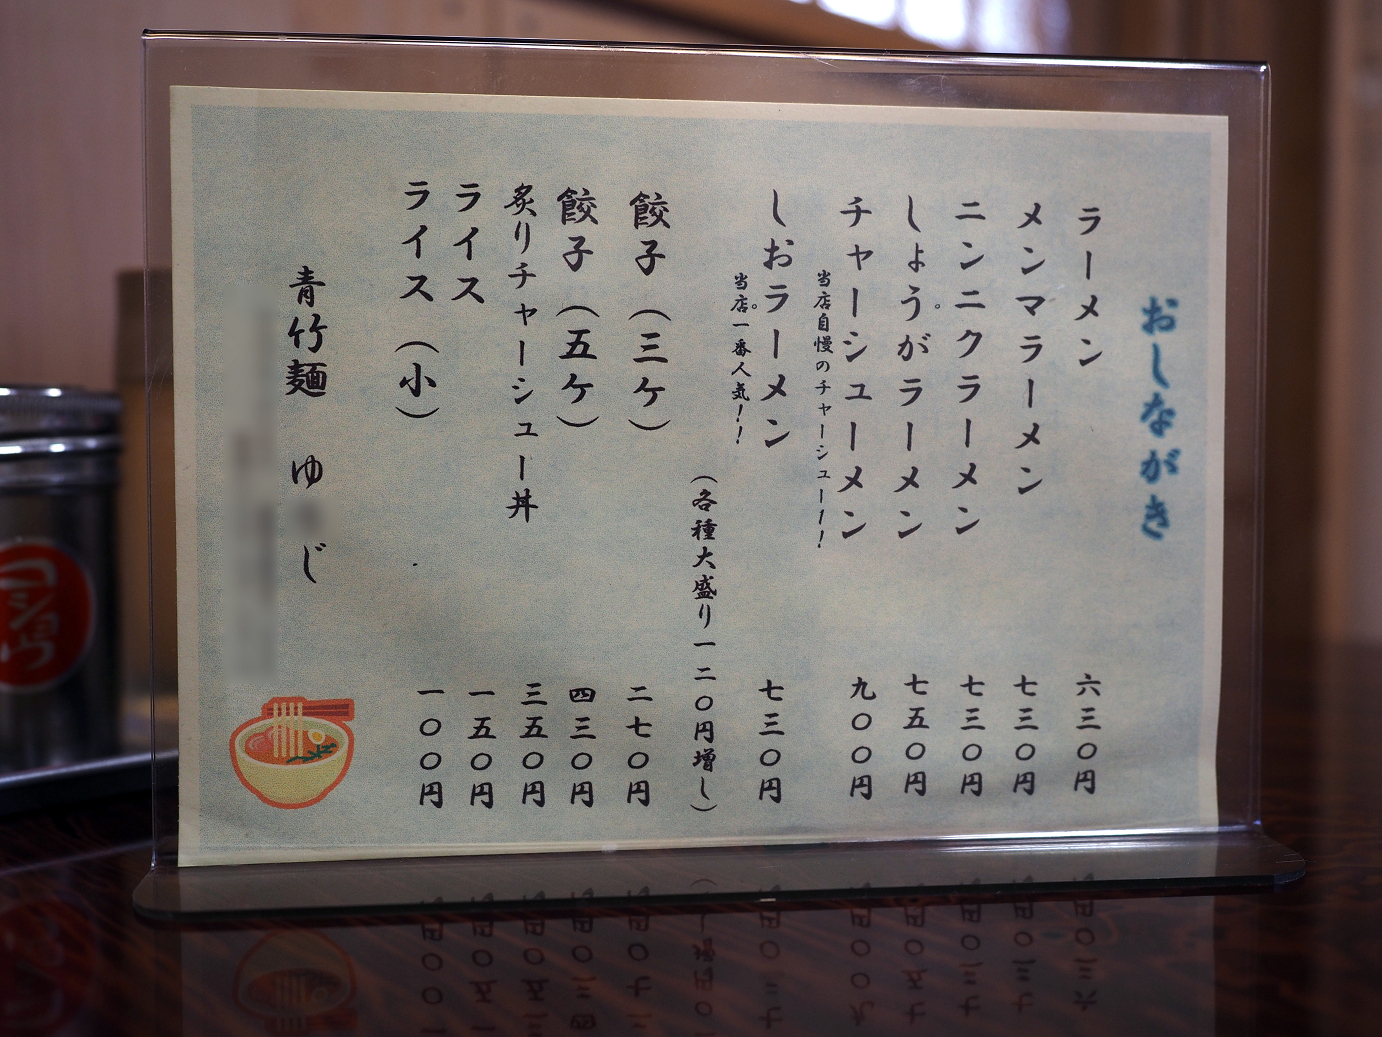 おしながき
ラーメン 六三〇円
メンマラーメン 七三〇円
ニンニクラーメン 七三〇円
しょうがラーメン 七五〇円
チャーシューメン 九〇〇円
当店自慢のチャーシュー!!
しおラーメン 七三〇円
当店一番人気!!
(各種大盛り一二〇円増し)
餃子(三ケ) 二七〇円
餃子(五ケ) 四三〇円
炙りチャーシュー丼 三五〇円
ライス 一五〇円
ライス(小) 一〇〇円
青竹麺 ゆ じ